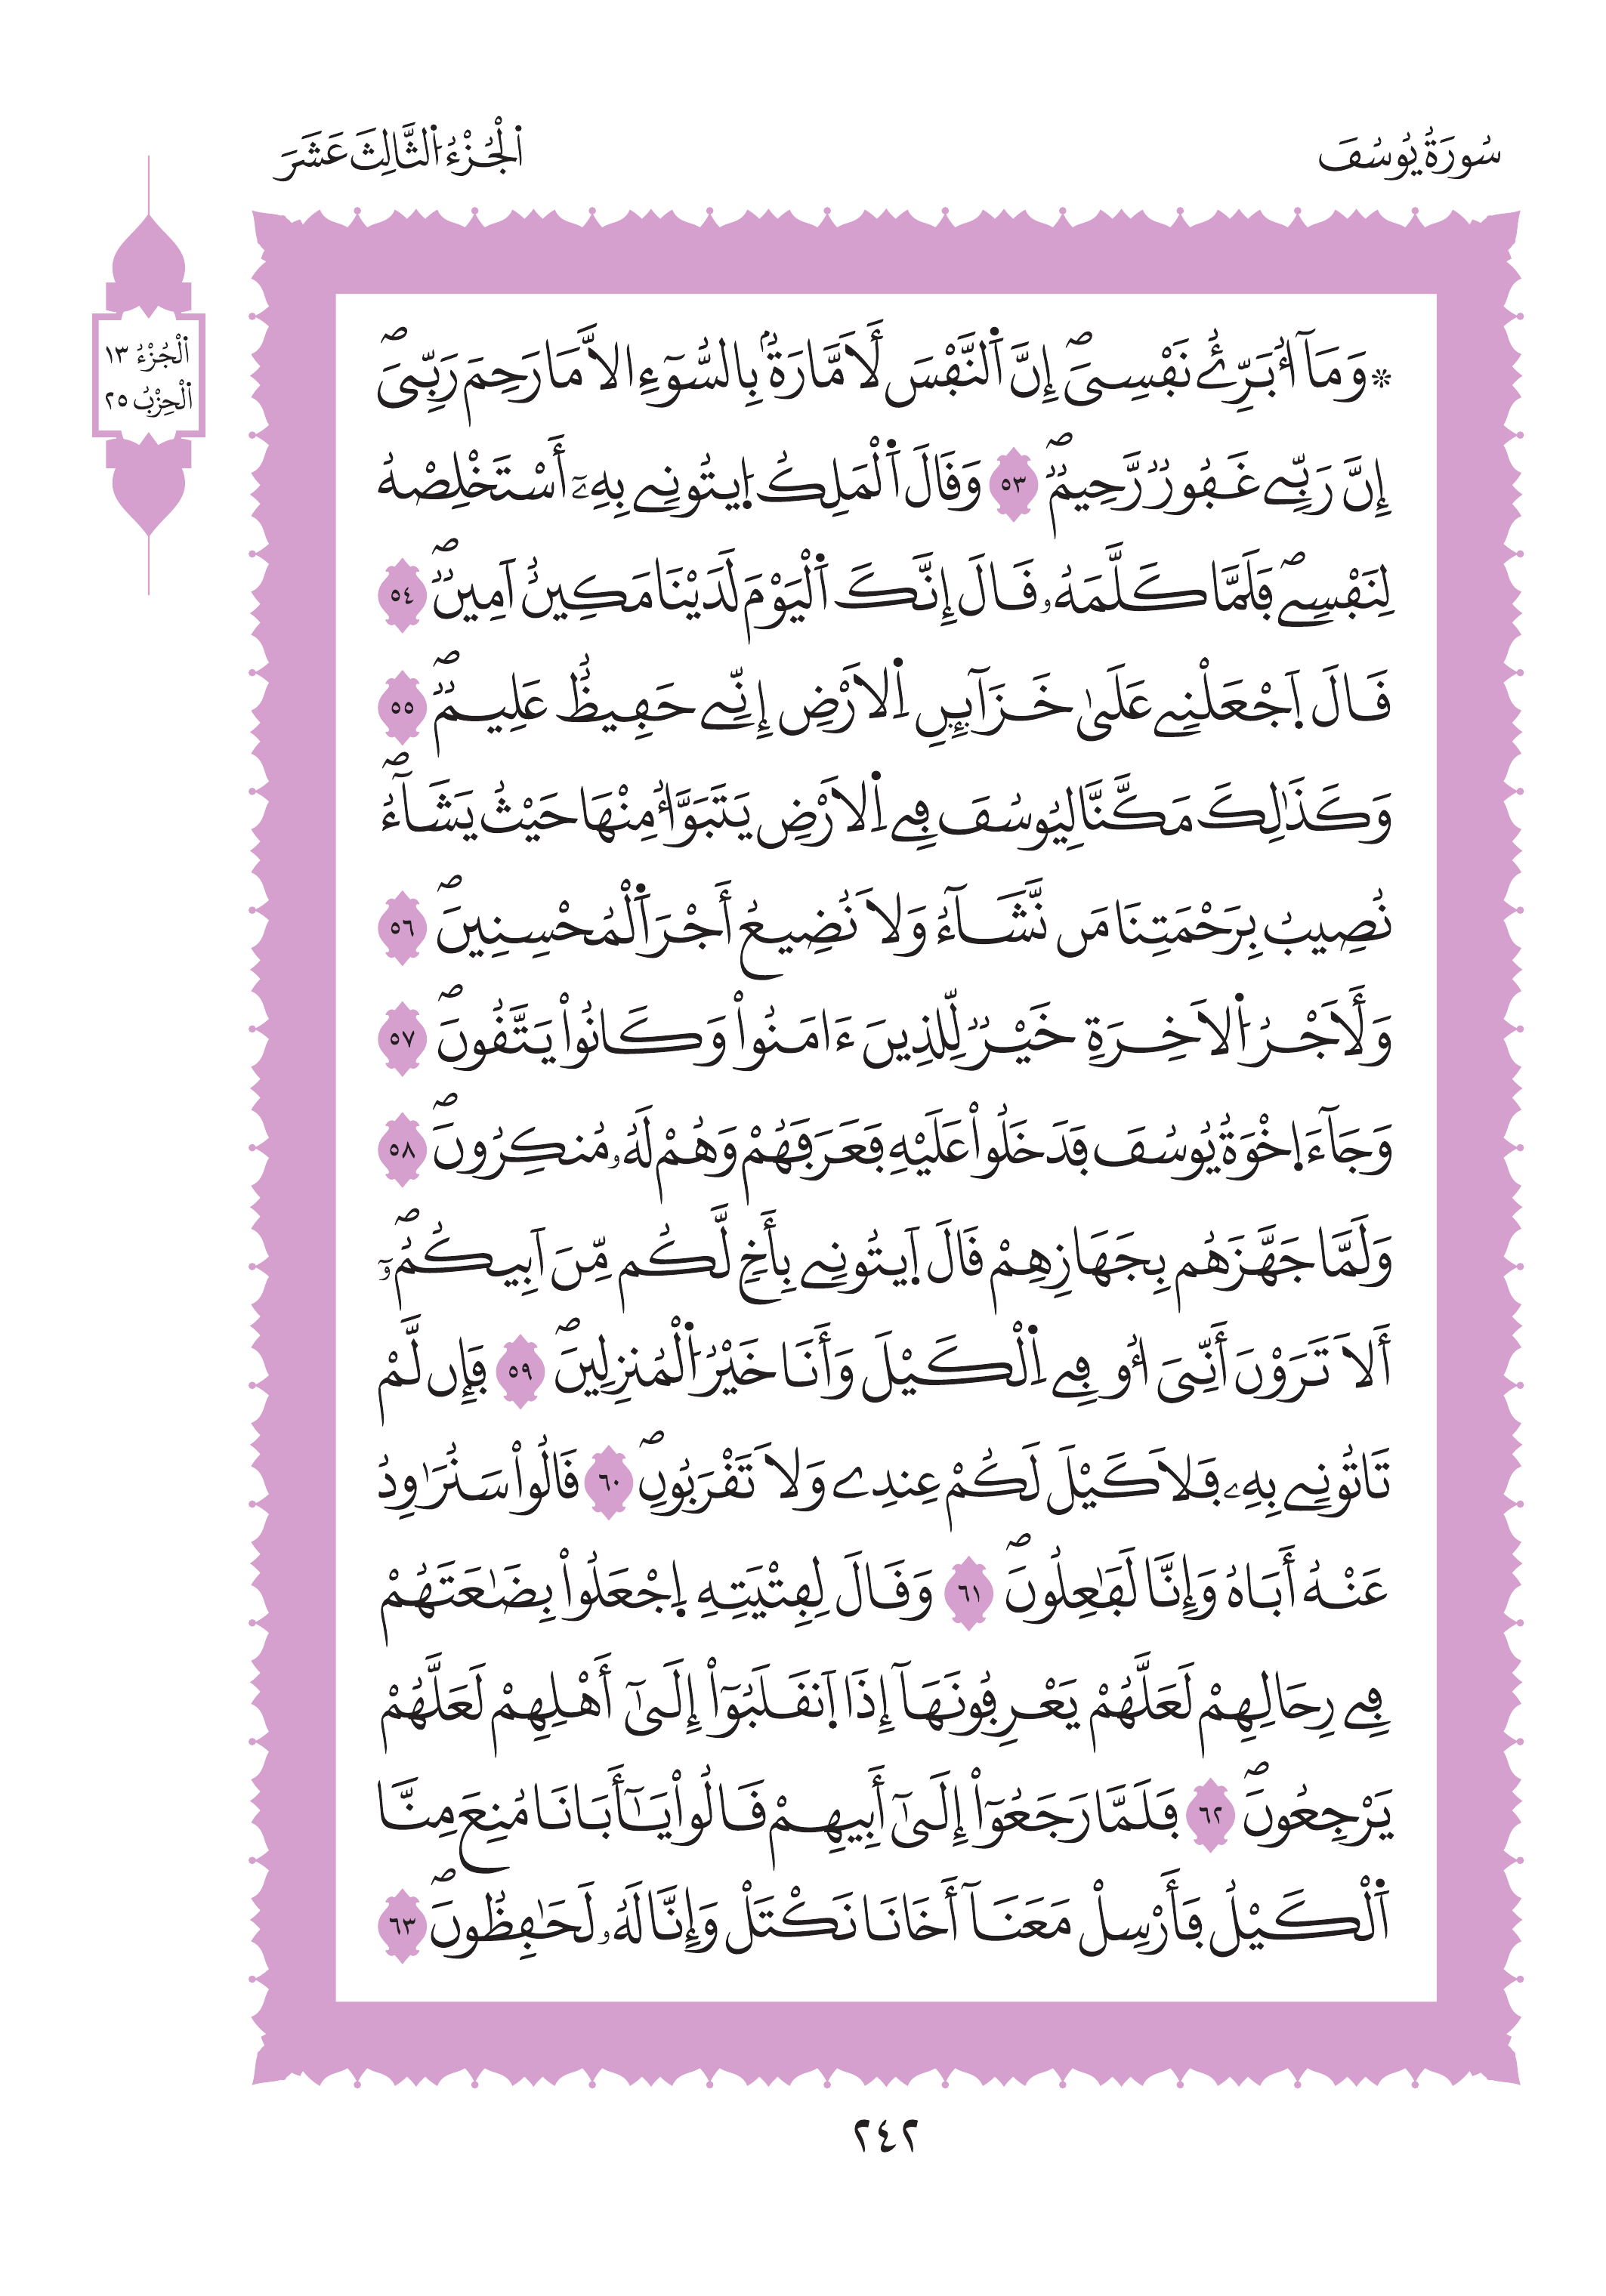 سُورَةُ يُوسُفَ
اَ۬لْجُزْءُ اُ۬لثَّالِثَ عَشَرَ
اَ۬لْجُزْءُ ١٣
اَ۬لْحِزْبُ ٢٥
۞وَمَآ أُبَرِّئُ نَفْسِيَۖ إِنَّ اَ۬لنَّفْسَ لَأَمَّارَةُۢ بِالسُّوٓءِ الَّا مَا رَحِمَ رَبِّيَۖ
إِنَّ رَبِّے غَفُورٞ رَّحِيمٞۖ ٥٣ وَقَالَ اَ۬لْمَلِكُ اُ۪يتُونِے بِهِۦٓ أَسْتَخْلِصْهُ
لِنَفْسِےۖ فَلَمَّا كَلَّمَهُۥ قَالَ إِنَّكَ اَ۬لْيَوْمَ لَدَيْنَا مَكِينٌ اَمِينٞۖ ٥٤
قَالَ اَ۪جْعَلْنِے عَلَىٰ خَزَآئِنِ اِ۬لَارْضِ إِنِّے حَفِيظٌ عَلِيمٞۖ ٥٥
وَكَذَٰلِكَ مَكَّنَّا لِيُوسُفَ فِے اِ۬لَارْضِ يَتَبَوَّأُ مِنْهَا حَيْثُ يَشَآءُۖ
نُصِيبُ بِرَحْمَتِنَا مَن نَّشَآءُ وَلَا نُضِيعُ أَجْرَ اَ۬لْمُحْسِنِينَۖ ٥٦
وَلَأَجْرُ اُ۬لَاخِرَةِ خَيْرٞ لِّلذِينَ ءَامَنُواْ وَكَانُواْ يَتَّقُونَۖ ٥٧
وَجَآءَ اِ۪خْوَةُ يُوسُفَ فَدَخَلُواْ عَلَيْهِ فَعَرَفَهُمْ وَهُمْ لَهُۥ مُنكِرُونَۖ ٥٨
وَلَمَّا جَهَّزَهُم بِجَهَازِهِمْ قَالَ اَ۪يتُونِے بِأَخٖ لَّكُم مِّنَ اَبِيكُمُۥٓۖ
أَلَا تَرَوْنَ أَنِّيَ أُو۟فِے اِ۬لْكَيْلَ وَأَنَا خَيْرُ اُ۬لْمُنزِلِينَۖ ٥٩ فَإِن لَّمْ
تَاتُونِے بِهِۦ فَلَا كَيْلَ لَكُمْ عِندِے وَلَا تَقْرَبُونِۖ ٦٠ قَالُواْ سَنُرَٰوِدُ
عَنْهُ أَبَاهُ وَإِنَّا لَفَٰعِلُونَۖ ٦١ وَقَالَ لِفِتْيَتِهِ اِ۪جْعَلُواْ بِضَٰعَتَهُمْ
فِے رِحَالِهِمْ لَعَلَّهُمْ يَعْرِفُونَهَآ إِذَا اَ۪نقَلَبُوٓاْ إِلَىٰٓ أَهْلِهِمْ لَعَلَّهُمْ
يَرْجِعُونَۖ ٦٢ فَلَمَّا رَجَعُوٓاْ إِلَىٰٓ أَبِيهِمْ قَالُواْ يَٰٓأَبَانَا مُنِعَ مِنَّا
اَ۬لْكَيْلُ فَأَرْسِلْ مَعَنَآ أَخَانَا نَكْتَلْ وَإِنَّا لَهُۥ لَحَٰفِظُونَۖ ٦٣
٢٤٢